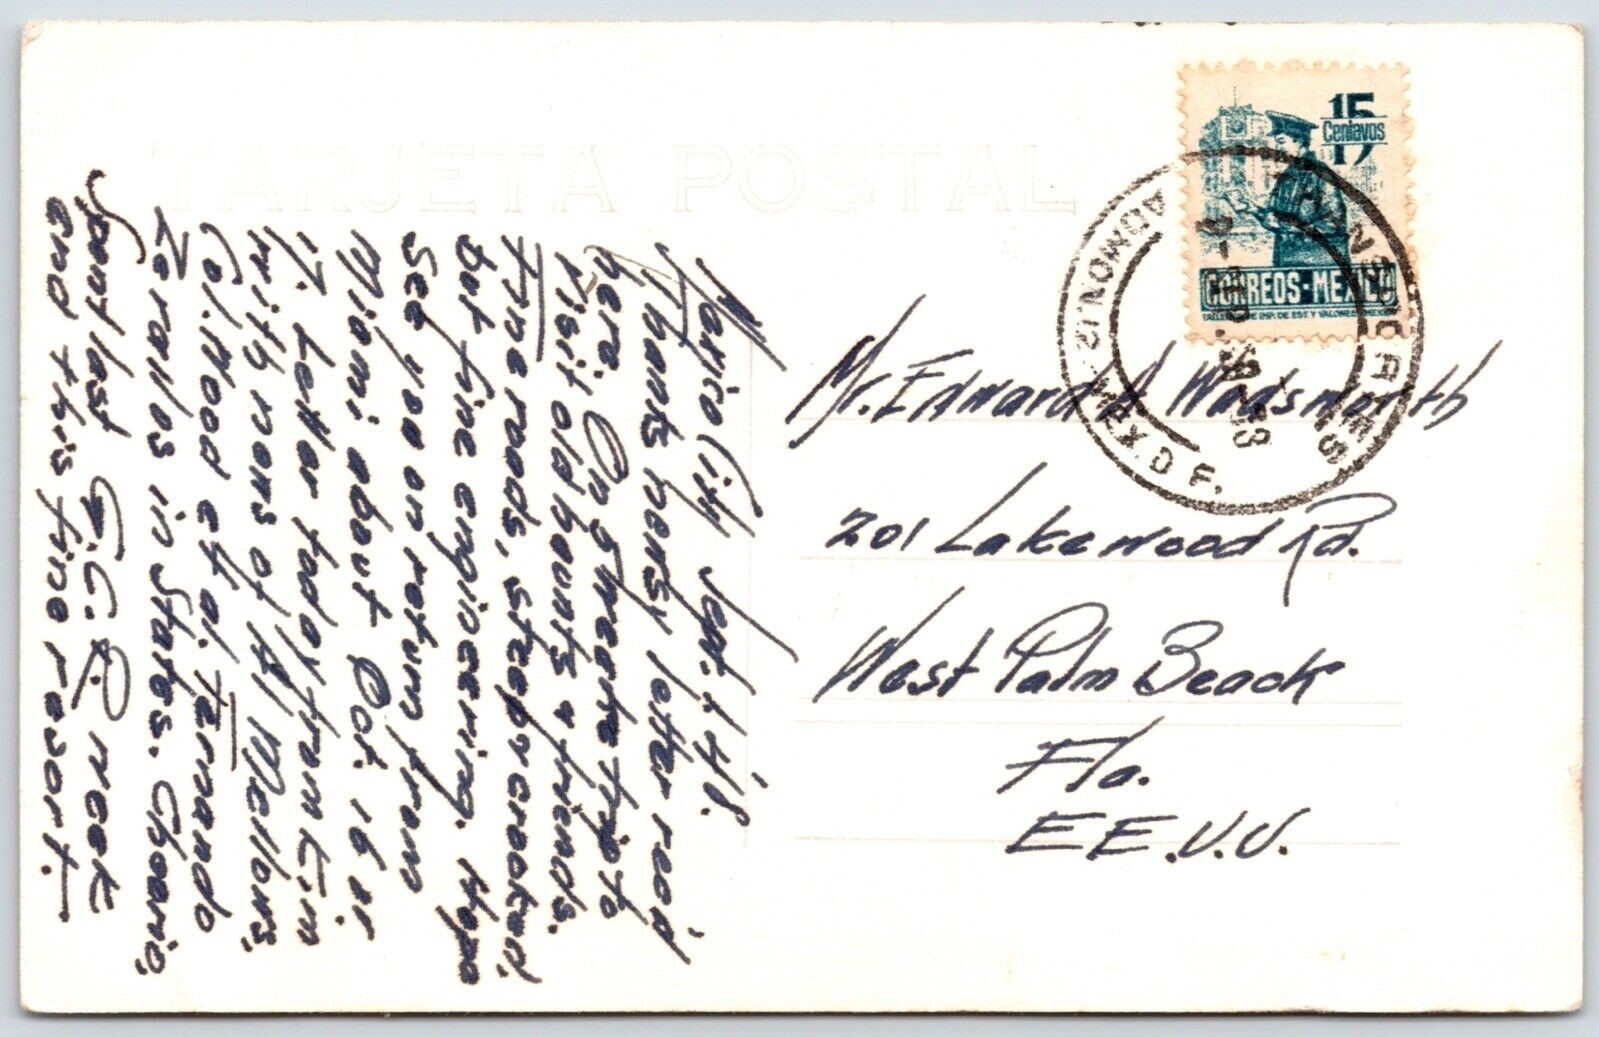 TARJETA POSTAL
15
Centavos
CORREOS-MEXICO
ADMON. 12 MEX. D F.
Mexico City Sept. 1, 48.
Thanks hensy letter recd
here. On 5 hr auto trip to
visit old haunts & friends.
Fine roads, steep, crooked,
but fine engineering. Hope
see you on return from
Miami about Oct. 16 or
17. Letter today from Kim
with news of Al Mellors,
Col. Wood et al. Fernando
Zerallos in States. Cheerio,
Spent last week
end this fine resort.
Mr. Edward A Wadsworth
201 Lakewood Rd.
West Palm Beach
Fla.
E E. U. U.